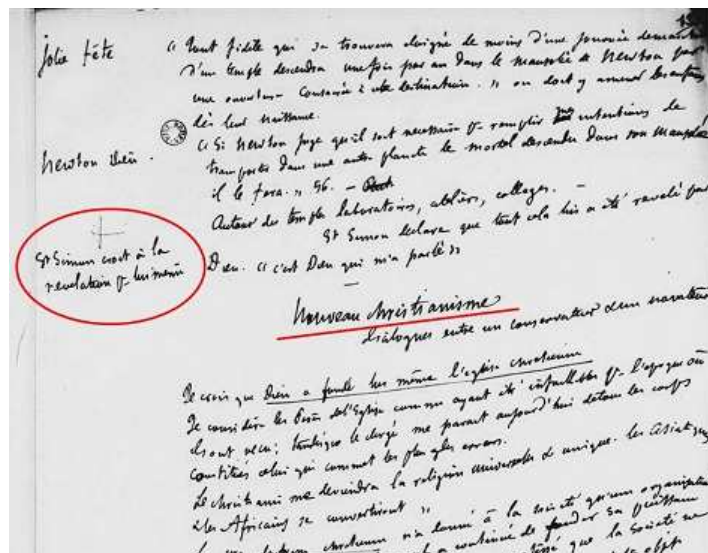 jolie fête
« Tout fidèle qui se trouvera éloigné de moins d'une journée de marche
d'un temple descendra une fois par an dans le mausolée de Newton par
une ouverture consacrée à cette destination. » on doit y amener les enfants
dès leur naissance.
Newton Dieu.
« Si Newton juge qu'il soit nécessaire pr remplir mes intentions de
transporter dans une autre planète le mortel descendu dans son mausolée
il le fera. » 56. –
Autour des temples laboratoires, atéliers, collèges. –
St Simon croit à la
revelation pr lui même
St Simon déclara que tout cela lui a été revelé par
Dieu. « c'est Dieu qui m'a parlé »
Nouveau christianisme
dialogues entre un conservateur & un novateur
Je crois que Dieu a fondé lui même l'église chretienne
Je considère les Pères de l'Eglise comme ayant été infaillibles pr l'époque où
ils ont vécu ; tandisque le clergé me parait aujourd'hui de tous les corps
constitués celui qui commet les plus gdes erreurs.
Le christianisme deviendra la religion universelle & unique. les Asiatiques
& les Africains se convertiront »
chretien n'a donné à la société qu'une organisation
a continué de fonder sa puissance
que la société ne